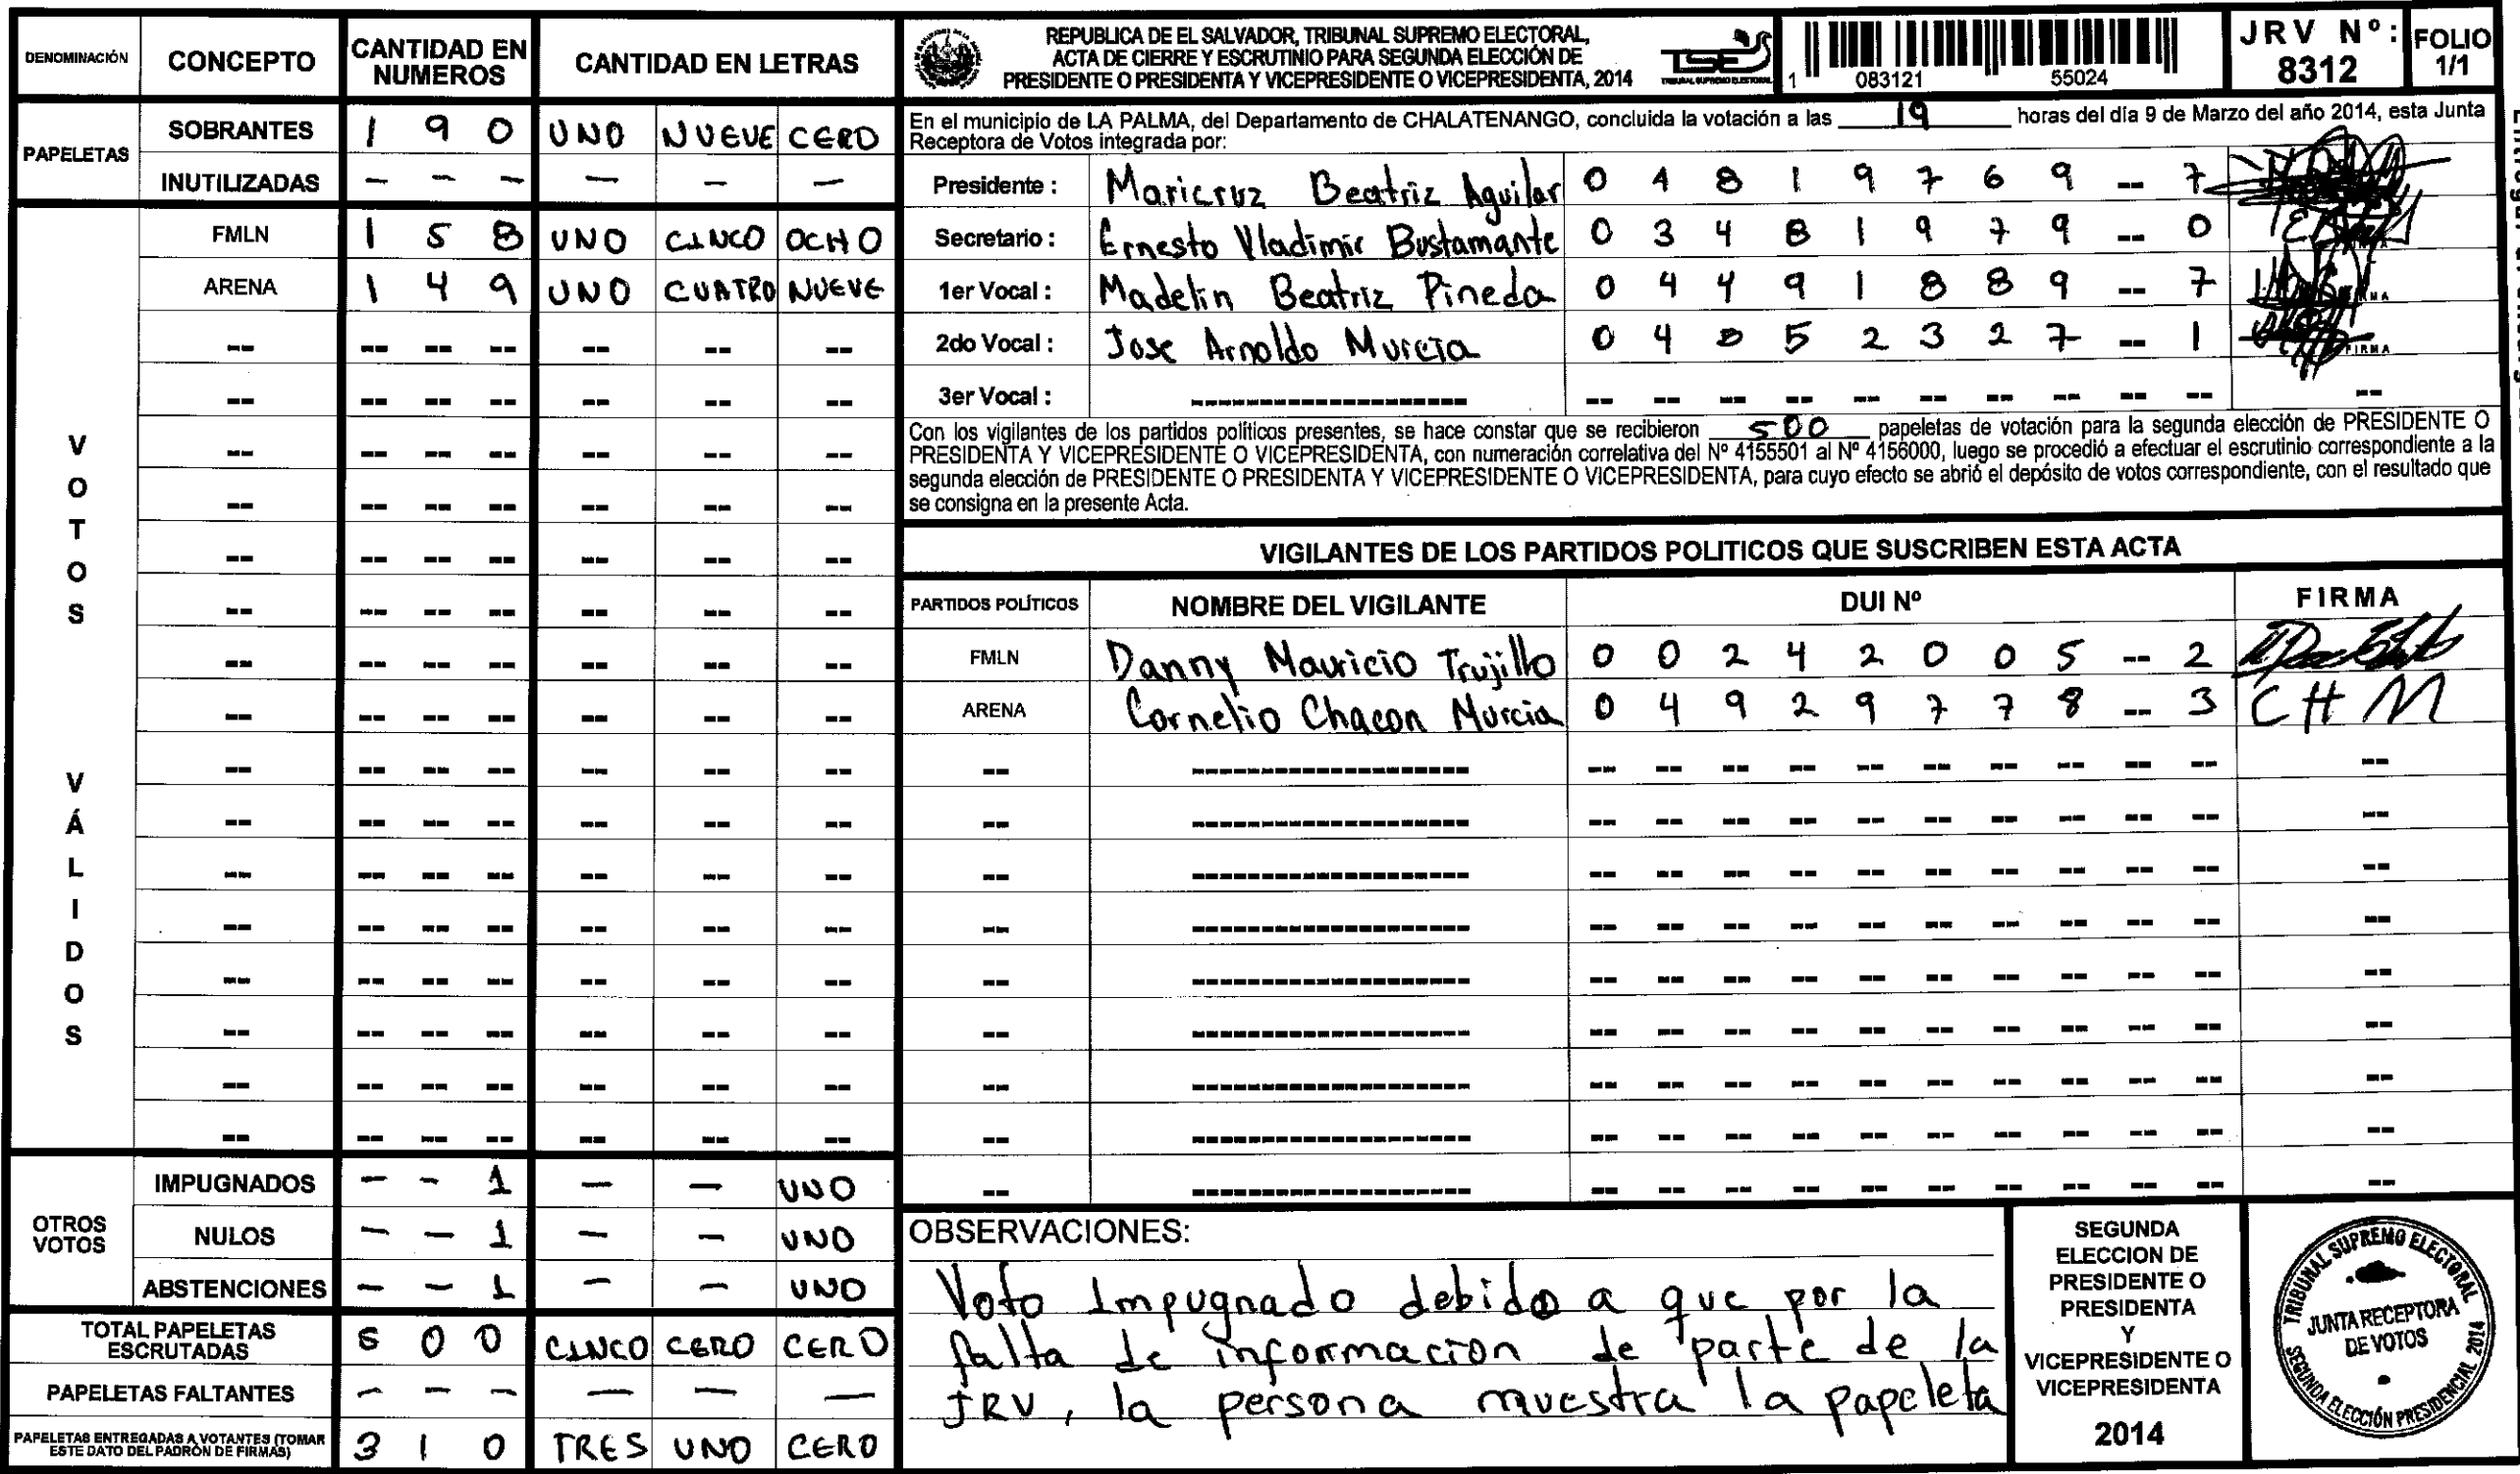 DENOMINACIÓN CONCEPTO CANTIDAD EN NUMEROS CANTIDAD EN LETRAS
PAPELETAS
SOBRANTES 1 9 0 UNO NUEVE CERO
INUTILIZADAS - - - - - -
VOTOS VÁLIDOS
FMLN 1 5 8 UNO CINCO OCHO
ARENA 1 4 9 UNO CUATRO NUEVE
OTROS VOTOS
IMPUGNADOS - - 1 - - UNO
NULOS - - 1 - - UNO
ABSTENCIONES - - 1 - - UNO
TOTAL PAPELETAS ESCRUTADAS 5 0 0 CINCO CERO CERO
PAPELETAS FALTANTES - - - - - -
PAPELETAS ENTREGADAS A VOTANTES (TOMAR ESTE DATO DEL PADRÓN DE FIRMAS) 3 1 0 TRES UNO CERO
REPUBLICA DE EL SALVADOR, TRIBUNAL SUPREMO ELECTORAL,
ACTA DE CIERRE Y ESCRUTINIO PARA SEGUNDA ELECCIÓN DE
PRESIDENTE O PRESIDENTA Y VICEPRESIDENTE O VICEPRESIDENTA, 2014
TSE
TRIBUNAL SUPREMO ELECTORAL
1 083121 55024
JRV Nº: 8312
FOLIO 1/1
En el municipio de LA PALMA, del Departamento de CHALATENANGO, concluida la votación a las 19 horas del día 9 de Marzo del año 2014, esta Junta
Receptora de Votos integrada por:
Presidente : Maricruz Beatriz Aguilar 0 4 8 1 9 7 6 9 -- 7
Secretario : Ernesto Vladimir Bustamante 0 3 4 8 1 9 7 9 -- 0
1er Vocal : Madelin Beatriz Pineda 0 4 4 9 1 8 8 9 -- 7
2do Vocal : Jose Arnoldo Murcia 0 4 0 5 2 3 2 7 -- 1 FIRMA
3er Vocal :
Con los vigilantes de los partidos políticos presentes, se hace constar que se recibieron 500 papeletas de votación para la segunda elección de PRESIDENTE O
PRESIDENTA Y VICEPRESIDENTE O VICEPRESIDENTA, con numeración correlativa del Nº 4155501 al Nº 4156000, luego se procedió a efectuar el escrutinio correspondiente a la
segunda elección de PRESIDENTE O PRESIDENTA Y VICEPRESIDENTE O VICEPRESIDENTA, para cuyo efecto se abrió el depósito de votos correspondiente, con el resultado que
se consigna en la presente Acta.
VIGILANTES DE LOS PARTIDOS POLITICOS QUE SUSCRIBEN ESTA ACTA
PARTIDOS POLÍTICOS NOMBRE DEL VIGILANTE DUI Nº FIRMA
FMLN Danny Mauricio Trujillo 0 0 2 4 2 0 0 5 -- 2
ARENA Cornelio Chacon Murcia 0 4 9 2 9 7 7 8 -- 3 C H M
OBSERVACIONES:
Voto Impugnado debido a que por la
falta de informacion de parte de la
JRV, la persona muestra la papeleta
SEGUNDA
ELECCION DE
PRESIDENTE O
PRESIDENTA
Y
VICEPRESIDENTE O
VICEPRESIDENTA
2014
TRIBUNAL SUPREMO ELECTORAL
JUNTA RECEPTORA
DE VOTOS
SEGUNDA ELECCIÓN PRESIDENCIAL 2014